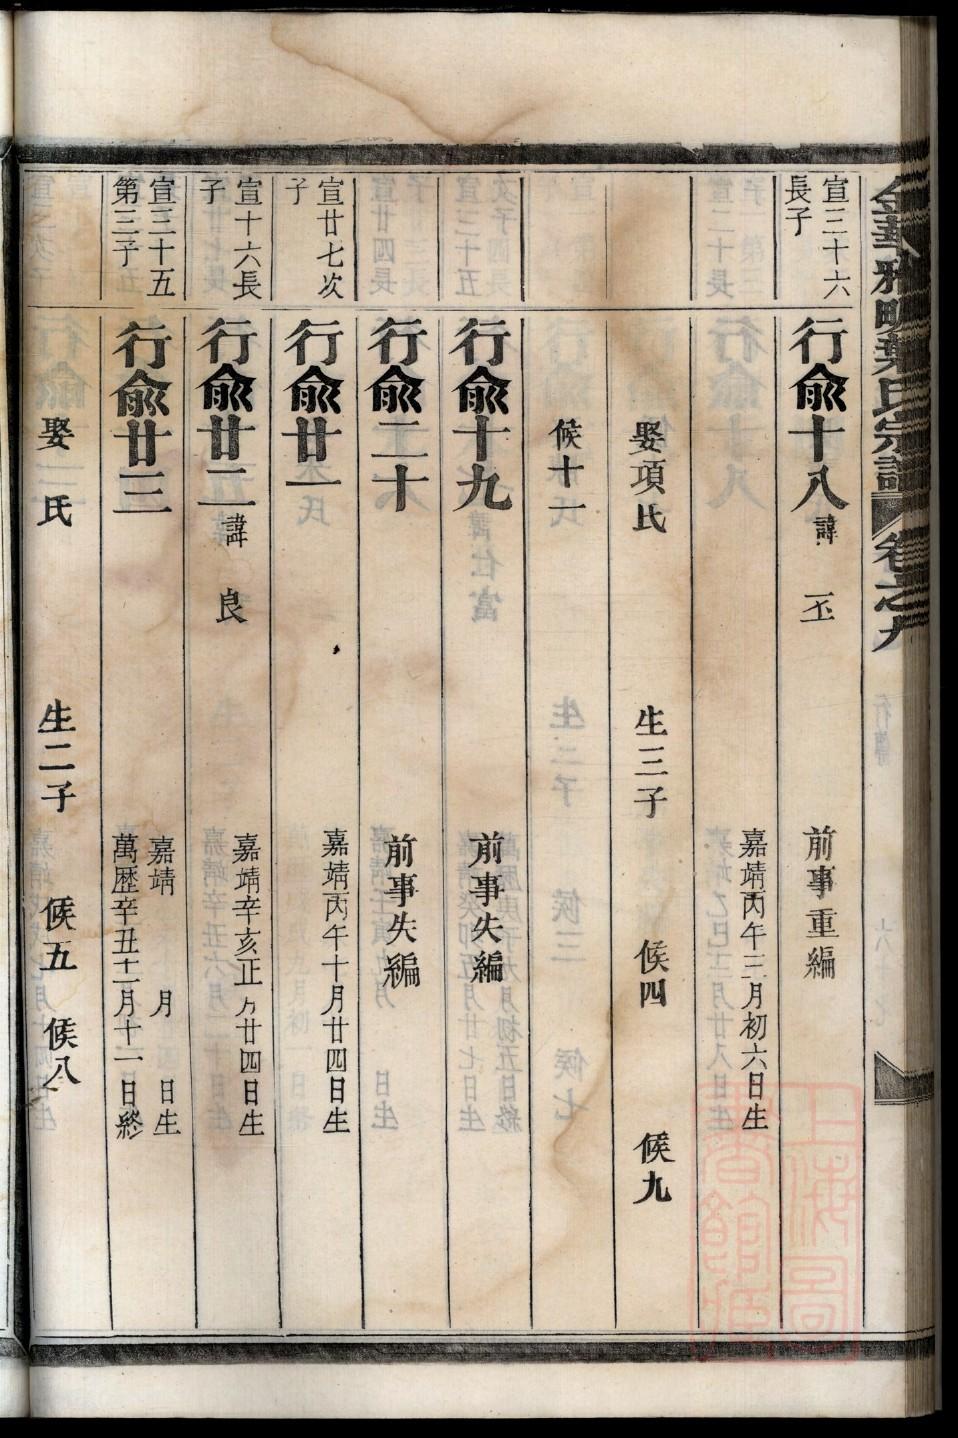 金華雅畈葉氏宗譜 卷之九
宣三十六
長子
行兪十八 諱 丕 前事重編
嘉靖丙午三月初六日生
娶項氏 生三子 候四 候九
候十一
行兪十九 前事失編
行兪二十 前事失編
宣廿七次
子
行兪廿一 嘉靖丙午十月廿四日生
宣十六長
子
行兪廿二 諱 良 嘉靖辛亥正月廿四日生
宣三十五
第三子
行兪廿三 嘉靖 月 日生
萬歷辛丑十二月十一日終
娶 氏 生二子 候五 候八
上海圖書館藏